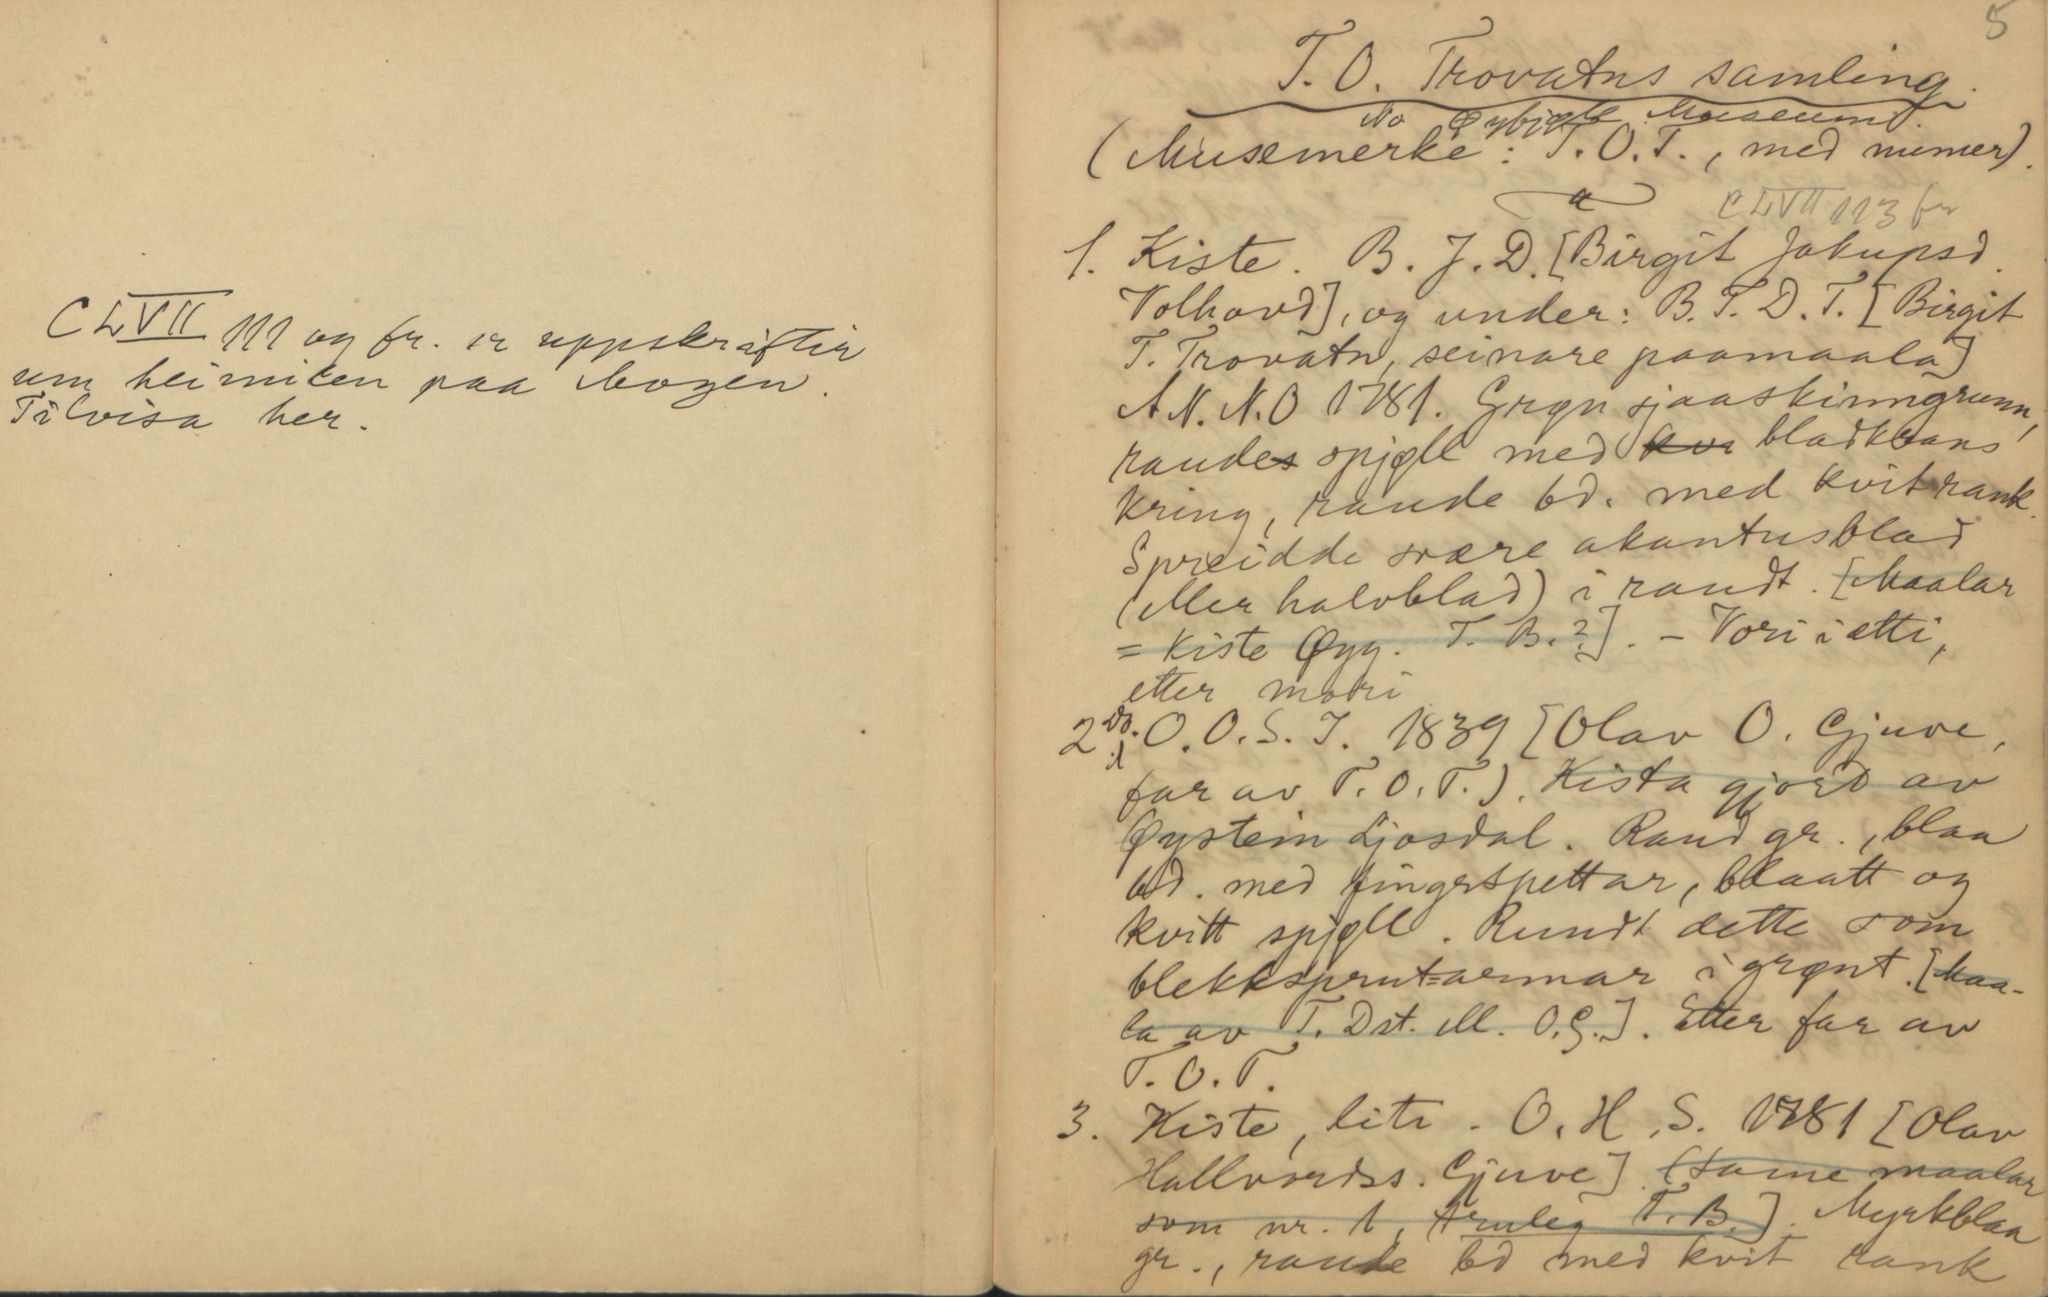 CLVII 111 og fr. er uppskrifter
um heimilen paa Mogen.
Tilvisa her.
5
T. O. Trovatns samling.
No Øybjøll Museum.
(Musemerke: T.O.T., med numer).
a
CLVII 113 fr
1. Kiste. B. J. D. [Birgit Jakupsd.
Volhovd], og under: B. T. D. T. [Birgit
T. Trovatn, seinare paamaala]
A N. N. O 1781. Grøn sjaaskinngrunn,
raude spjøll med bladkrans
kring, raude bd. med kvit rank.
Spreidde svære akantusblad
(eller halvblad) i raudt. [Maalar
= Kiste Øyg. T. B.?]. - Vori i ætti,
etter mori
2. Do. O. O. S. J. 1839 [Olav O. Gjuve,
far av T. O. T.). Kista gjord av
Øystein Ljosdal. Raud gr., blaa
bd. med fingerspettar, blaatt og
kvitt spjøll. Rundt dette som
blekksprut=armar i grønt. [Maa-
la av T. Dst. M. O. G.]. Etter far av
T. O. T.
3. Kiste, liti. O. H. S. 1781 [Olav
Hallvordss. Gjuve] (same maalar
som nr. 1, truleg T. B.]. Myrkblaa
gr., raude bd med kvit rank